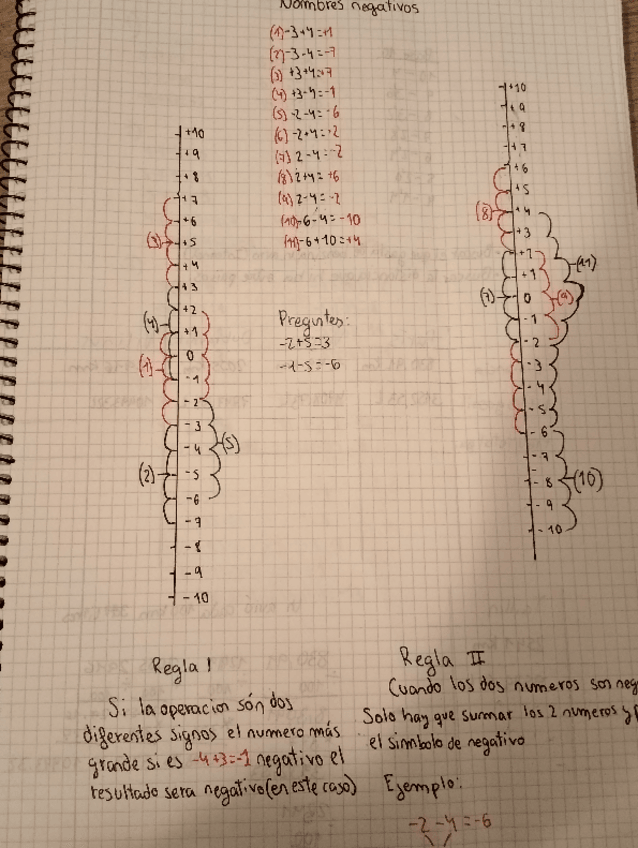 Nombres negativos
(1) -3+4=+1
(2) -3-4=-7
(3) +3+4=+7
(4) +3-4=-1
(5) -2-4=-6
(6) -2+4=+2
(7) 2-4=-2
(8) 2+4=+6
(9) 2-4=-2
(10) -6-4=-10
(11) -6+10=+4
Pregutes:
-2+5=3
-1-5=-6
+10
+9
+8
+7
+6
(3) +5
+4
+3
+2
(4) +1
0
(1) -1
-2
-3
-4 (5)
(2) -5
-6
-7
-8
-9
-10
+10
+9
+8
+7
+6
+5
(8) +4
+3
+2
+1 (11)
(7) 0 (9)
-1
-2
-3
-4
-5
-6
-7
-8 (10)
-9
-10
Regla I
Si la operacion són dos
diferentes signos el numero más
grande si es -4+3=-1 negativo el
resultado sera negativo (en este caso)
Regla II
Cuando los dos numeros son neg
Solo hay que summar los 2 numeros y
el simbolo de negativo
Ejemplo:
-2-4=-6